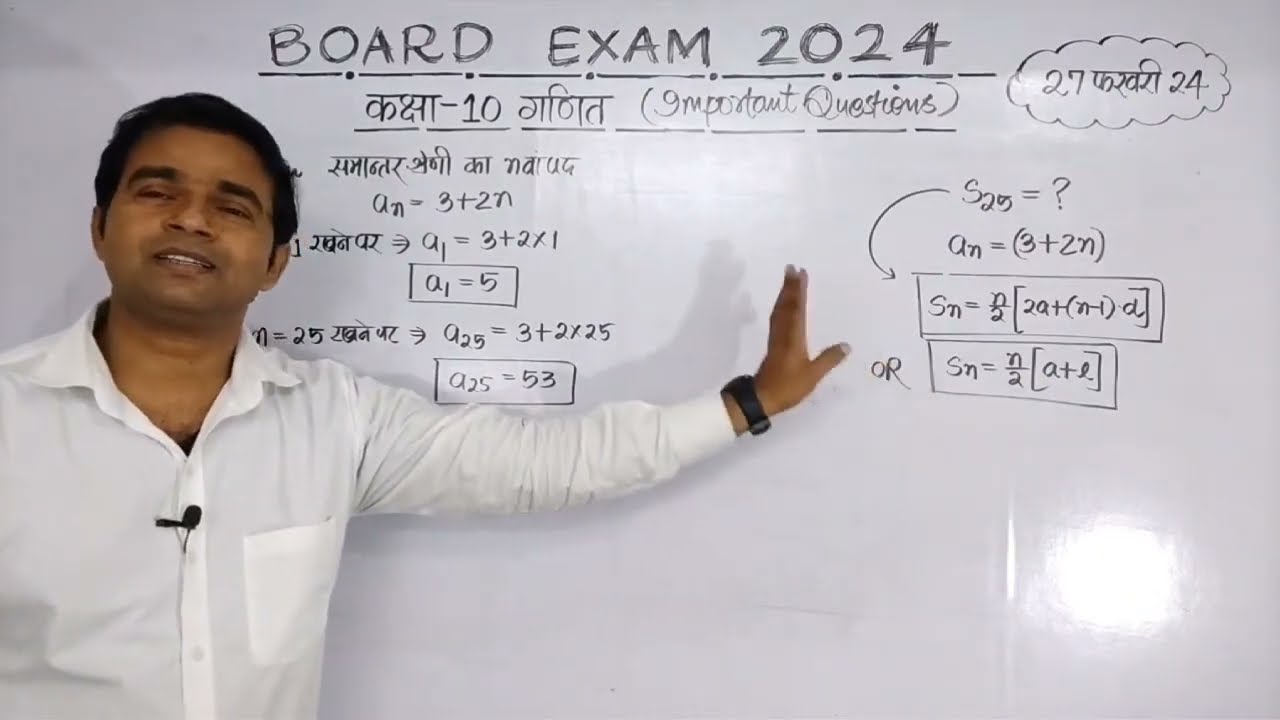 BOARD EXAM 2024
27 फरवरी 24
कक्षा-10 गणित (Important Questions)
समान्तर श्रेणी का nवां पद
aₙ = 3+2n
1 रखने पर ⇒ a₁ = 3+2×1
a₁ = 5
n = 25 रखने पर ⇒ a₂₅ = 3+2×25
a₂₅ = 53
S₂₅ = ?
aₙ = (3+2n)
Sₙ = n/2 [2a+(n-1)·d]
OR Sₙ = n/2 [a+l]